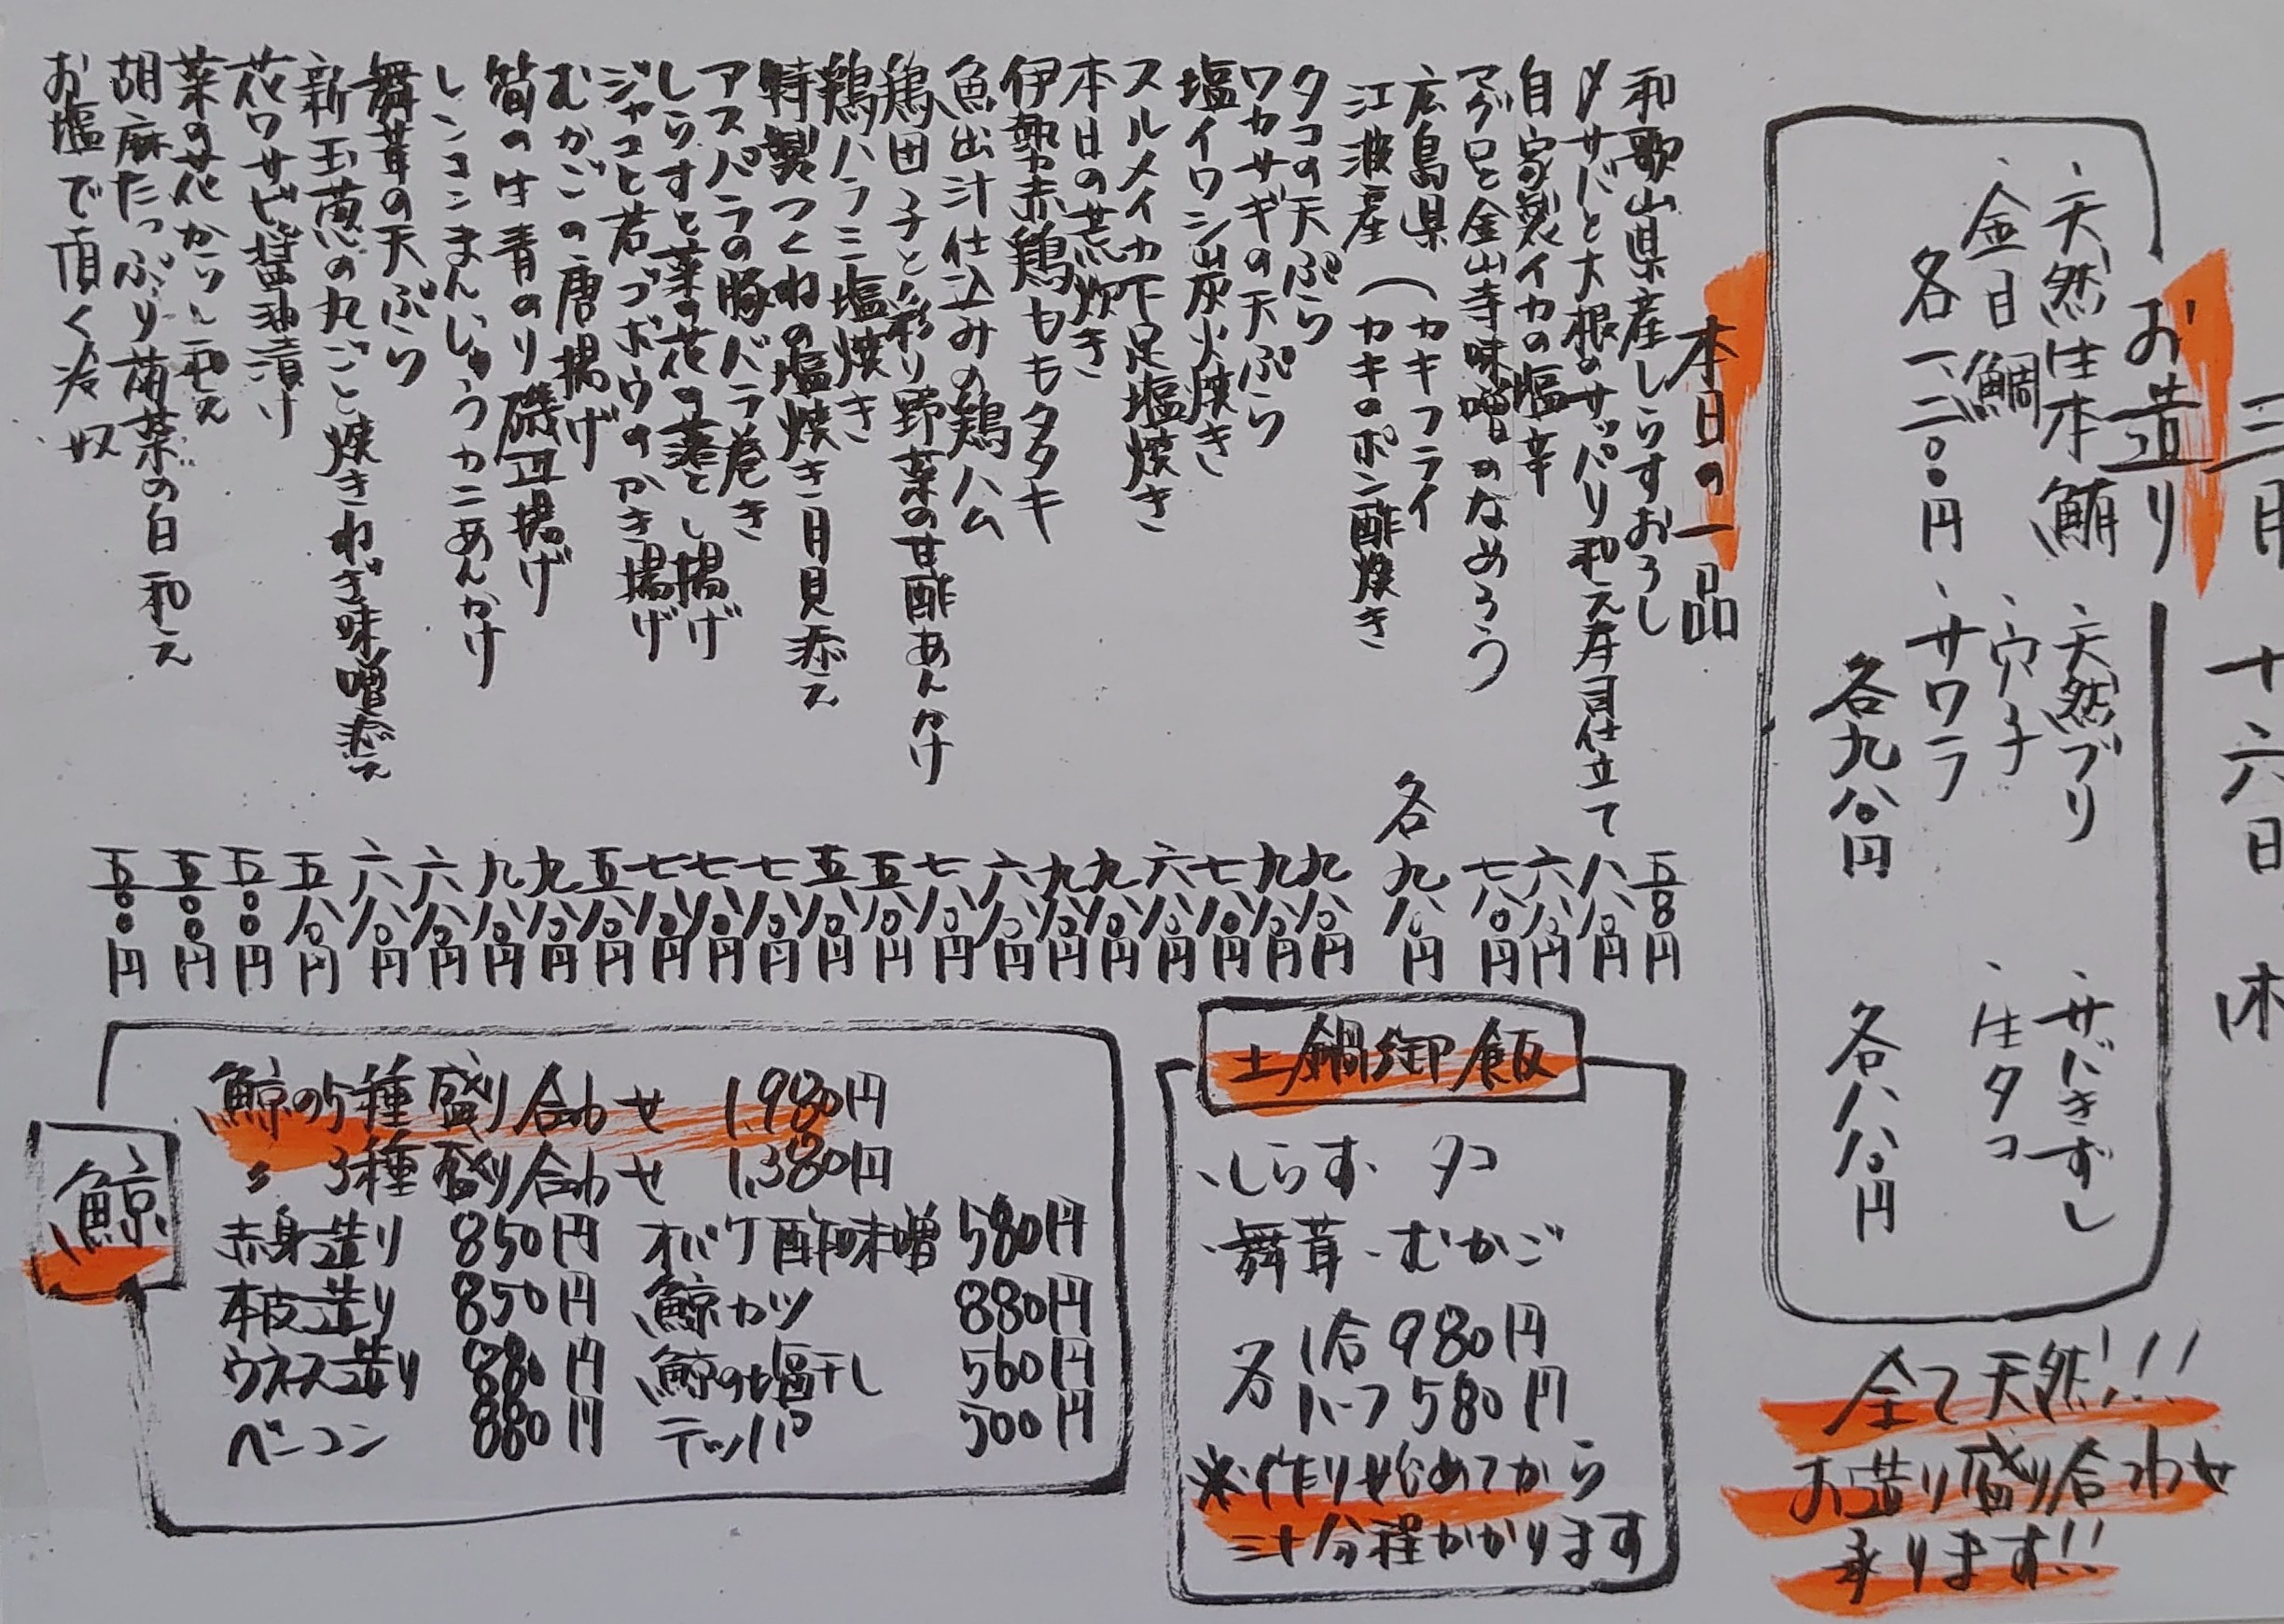 三月十六日 木
お造り
、天然生本鮪
、金目鯛
各一二八〇円
、天然ブリ
、穴子
、サワラ
各九八〇円
、サバきずし
、生タコ
各八八〇円
全て天然!!
お造り盛り合わせ
承ります!!
本日の一品
和歌山県産しらすおろし 五八〇円
〆サバと大根のサッパリ和え寿司仕立て 八八〇円
自家製イカの塩辛 六八〇円
マグロと金山寺味噌のなめろう 七八〇円
広島県 (カキフライ
江波産 (カキのポン酢焼き
各九八〇円
タコの天ぷら 九八〇円
ワカサギの天ぷら 九八〇円
塩イワシ炭火焼き 七八〇円
スルメイカ下足塩焼き 六八〇円
本日の荒炊き 九八〇円
伊勢赤鶏ももタタキ 九八〇円
魚出汁仕込みの鶏ハム 六八〇円
鶏団子と彩り野菜の甘酢あんかけ 七八〇円
鶏ハラミ塩焼き 五八〇円
特製つくねの塩焼き月見添え 五八〇円
アスパラの豚バラ巻き 七八〇円
しらすと菜の花の落とし揚げ 七八〇円
ジャコと若ゴボウのかき揚げ 七八〇円
むかごの唐揚げ 五八〇円
筍の生青のり磯辺揚げ 九八〇円
レンコンまんじゅうカニあんかけ 九八〇円
舞茸の天ぷら 六八〇円
新玉葱の丸ごと焼きねぎ味噌添え 六八〇円
花ワサビ醤油漬け 五八〇円
菜の花からし和え 五〇〇円
胡麻たっぷり菊菜の白和え 五〇〇円
お塩で頂く冷奴 五〇〇円
土鍋御飯
、しらす、タコ
、舞茸、むかご
各 1合 980円
ハーフ 580円
※作り始めてから
三十分程かかります
鯨
鯨の5種盛り合わせ 1,980円
〃 3種盛り合わせ 1,380円
赤身造り 850円 オバケ酢味噌 580円
本皮造り 850円 鯨カツ 880円
ウネス造り 880円 鯨の塩干し 560円
ベーコン 880円 テッパ 500円